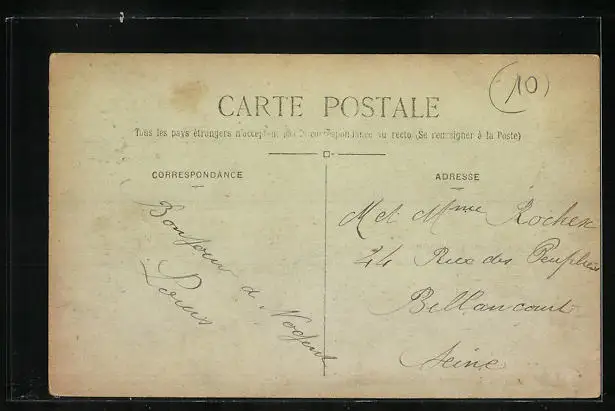 (10)
CARTE POSTALE
Tous les pays étrangers n'acceptent pas la correspondance au recto (Se renseigner à la Poste)
CORRESPONDANCE
Bonjour de Nogent
Louis
ADRESSE
M et Mme Rocher
24 Rue des Peupliers
Billancourt
Seine